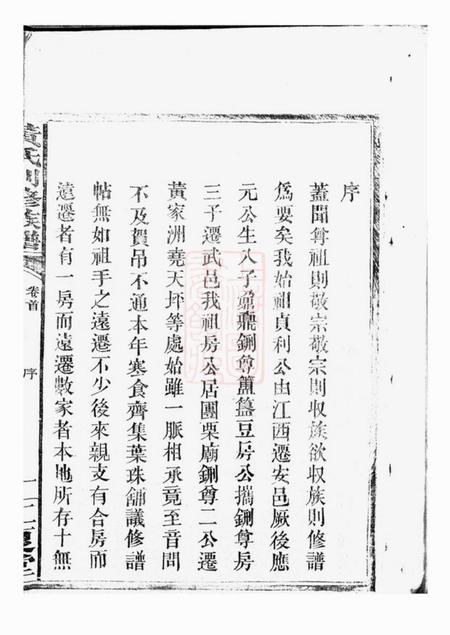 序
蓋聞尊祖則敬宗敬宗則収族欲収族則修譜
為要矣我始祖貞利公由江西遷安邑厥後應
元公生八子鼐鼎鉶尊簠簋豆房公攜鉶尊房
三子遷武邑我祖房公居團栗廟鉶尊二公遷
黃家洲堯天坪等處始雖一脈相承竟至音問
不及賀吊不通本年寒食齊集葉珠舖議修譜
帖無如祖手之遠遷不少後來親支有合房而
遠遷者有一房而遠遷數家者本地所存十無
黃氏閂修族譜
卷首
序
一